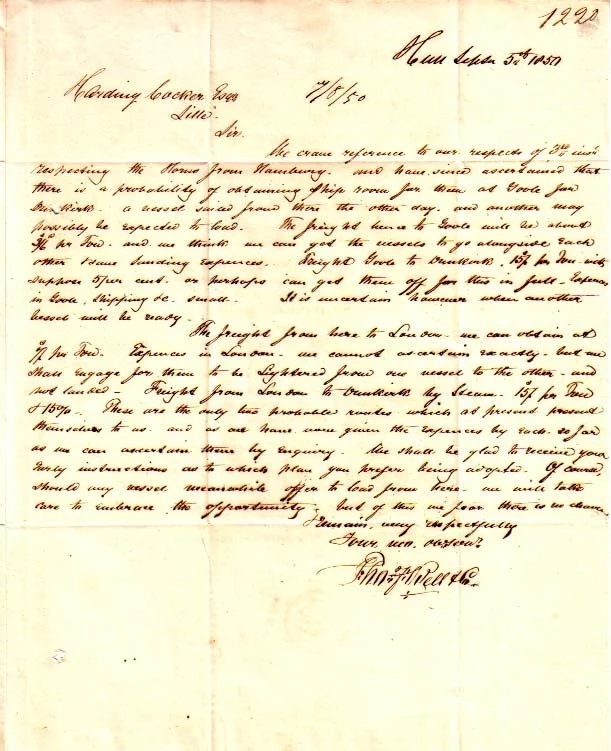 1220
Hull Septr 5th 1850
Harding Cocker Esqr 7/8/50
Lille
Sir
We crave reference to our respects of 3rd inst
respecting the Horns from Hamburg. and have since ascertained that
there is a probability of obtaining Ship room for them at Goole for
Dunkirk. a vessel sailed from there the other day. and another may
possibly be expected to load. The freight hence to Goole will be about
per Ton. and we think we can get the vessels to go alongside each
other & save landing Expences. Freight Goole to Dunkirk. 15/ per Ton with
suppose 5 per cent. or perhaps can get them off for this in full. Expences
in Goole, shipping &c. small. It is uncertain however when another
vessel will be ready.
The freight from here to London. we can obtain at
per Ton. Expences in London. we cannot ascertain exactly. but we
shall Engage for them to be Lightered from one vessel to the other. and
not landed. Freight from London to Dunkirk by Steam. 15/ per Ton
& 15%. These are the only two probable routes which at present present
themselves to us. and as we have now given the Expences by each so far
as we can ascertain them by Enquiry. We shall be glad to receive your
Early instructions as to which plan you prefer being adopted. Of course
should any vessel meanwhile offer to load from here. we will take
care to embrace the opportunity. but of this we fear there is no chance.
Remain, very respectfully
Your mo. ob Serv.
Pell & Co